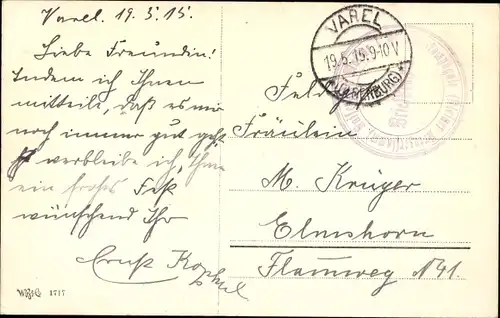 Varel. 19.5.15.
Liebe Freunden!
Indem ich Ihnen
mitteile, daß es mir
noch immer gut geht
verbleibe ich, Ihnen
ein frohes Fest
wünschend Ihr
Ernst
W.R.&C. 1717
VAREL
19.5.15.9-10V
(OLDENBURG)
Fräulein
M. Krüger
Elmshorn
Flamweg N41